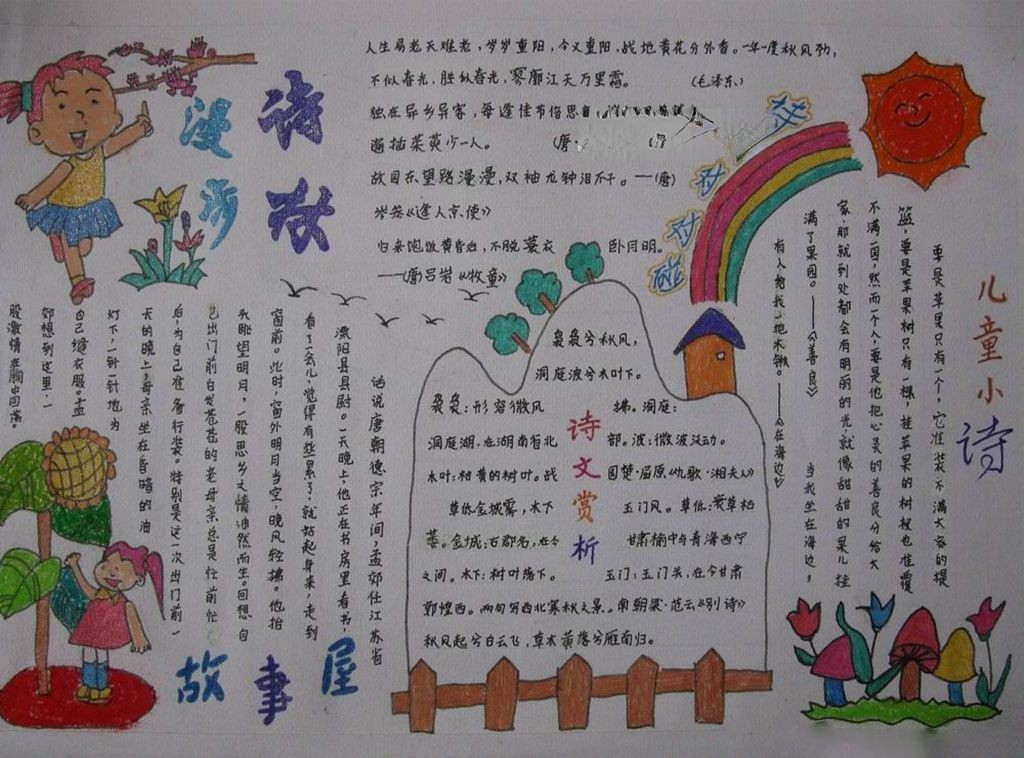 诗歌
漫步
人生易老天难老，岁岁重阳，今又重阳，战地黄花分外香。一年一度秋风劲，
不似春光，胜似春光，寥廓江天万里霜。（毛泽东）
独在异乡异客，每逢佳节倍思
遍插茱萸少一人。（唐
故园东望路漫漫，双袖龙钟泪不干。——（唐）
岑参《逢入京使》
归来饱饭黄昏后，不脱蓑衣卧月明。
——（唐）吕岩《牧童》
碰对对碰
儿童小诗
要是苹果只有一个，它准装不满大家的提
篮，要是苹果树只有一棵，挂苹果的树杈也准覆
不满一园，然而一个人，要是他把心灵的善良分给大
家，那就到处都会有明丽的光，就像甜甜的果儿挂
满了果园。——《善良》当我坐在海边，
有人给我一把木锹。——《在海边》
话说唐朝德宗年间，孟郊任江苏省
溧阳县县尉。一天晚上，他正在书房里看书，
看了一会儿，觉得有些累了，就站起身来，走到
窗前。此时，窗外明月当空，晚风轻拂。他抬
头眺望明月，一股思乡之情油然而生。回想自
己出门前白发苍苍的老母亲总是忙前忙
后，为自己准备行装。特别是这一次出门前一
天的晚上，母亲坐在昏暗的油
灯下，一针一针地为
自己缝衣服。孟
郊想到这里，一
股激情在胸中回荡。
故事屋
诗文赏析
袅袅兮秋风，
洞庭波兮木叶下。
袅袅：形容微风拂。洞庭：
洞庭湖，在湖南省北部。波：微波泛动。
木叶：枯黄的树叶。战国楚·屈原《九歌·湘夫人》
草低金城雾，木下玉门风。草低：衰草枯
萎。金城：古郡名，在今甘肃榆中与青海西宁
之间。木下：树叶落下。玉门：玉门关，在今甘肃
敦煌西。两句写西北寒秋之景。南朝梁·范云《别诗》
秋风起兮白云飞，草木黄落兮雁南归。